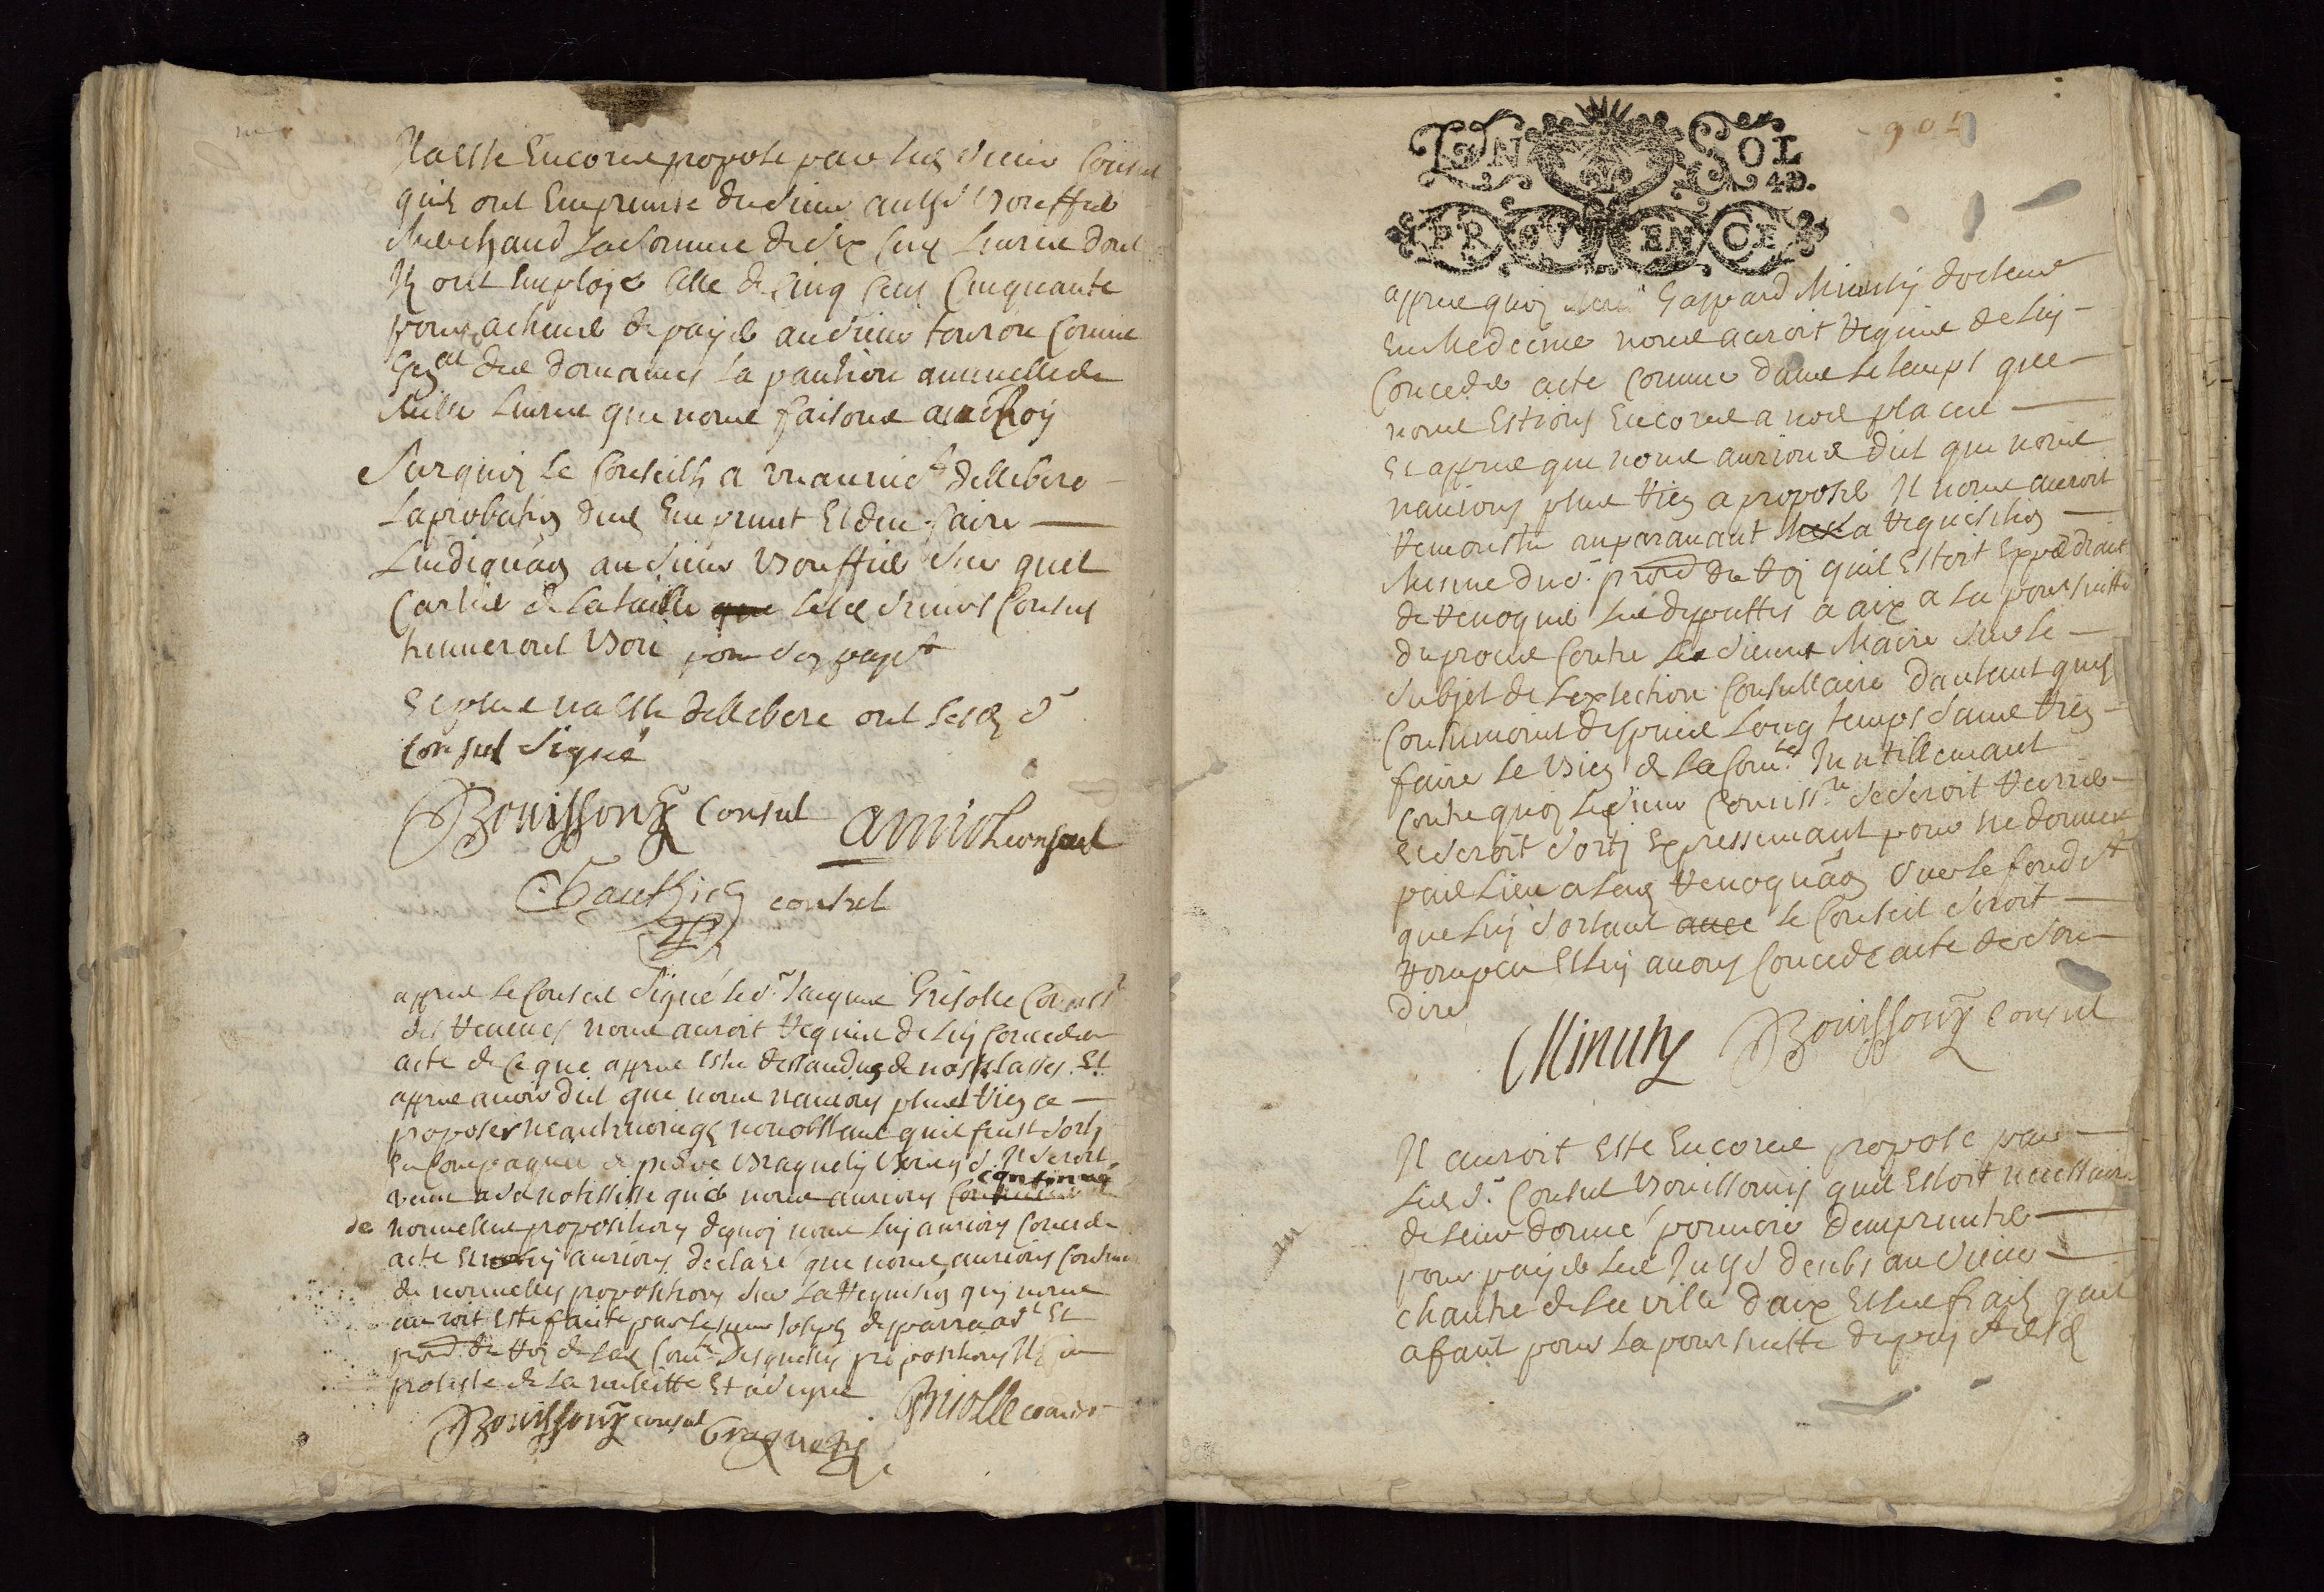 Il a esté Encore proposé par les sieurs Consul
quils ont Emprunté du sieur anthe Bouffier
Marchand La somme de six cens Livres dont
Ils ont Employé celle de Cinq cens Cinquante
pour achever de payer au sieur touron Comme
des domaines la pantion annuelle de
mille Livres que nous faisons au Roy
Surquoy le Conseilh a unanimet dellibere
Laprobation dud Emprunt Et den faire
Lindiquaon au sieur Bouffier sur quel
Cartier de la taille que lesd sieurs Consuls
treuveront Bon pour son payet
Et plus na esté dellibere ont lesd s
Consul signé
Bouissony Consul amiot consul
Gauthier consul
appres le Conseil signé le sr Jacques Griolle
des nous auroit requis de luy Conceder
acte de ce que appres estre dessandus de nos places Et
appres avoir dit que nous navions plus rien a
proposer neanthmoings nonobstant quil feust sorty
En Compagnie de Braguety Il seroit
venu a sa notississe que nous aurions Continué
de nouvelles propositions dequoy nous luy aurions Concede
acte Et luy aurions declaré que nous aurions Continué
de nouvelles propositions sur La requision quy nous
auroit esté faite par le sieur Joseph desparra adt Et
prod du roy de lad Comte desquelles propositions Il
proteste de la nullitte Et a signé
Bouissony consul Braguety Griolle

901
UN SOL
4D.
PROVENCE
appres quoy Mre Gaspard Minuty docteur
En Medecine nous auroit requis de luy
Conceder acte Comme dans le temps que
nous Estions Encore a nos places
Et appres que nous aurions dit que nous
navions plus rien a proposer Il nous auroit
remonstre auparavant la requisition
mesme du sr prod du roy quil Estoit Expediant
de revoquer les deputtes a aix a la poursuitte
du proces Contre les sieurs Maire sur le
subjet de Lexlection Consullaire dautant quils
Consumoint despuis Long temps sans rien
faire le Bien de la Comte Inutillemant
Contre quoy le sieur se seroit
Et seroit sorty Expressemant pour ne donner
pas Lieu a leur revoquaon sur le fondet
que luy sortant avec le Conseil seroit
rompeu Et luy avons Concede acte de son
dire
Minuty Bouissony Consul
Il auroit Esté Encore propose par
les srs Consul Bouissony quil Estoit necessaire
de leur donner pouvoir demprunter
pour payer les au sieur
chautre de la ville daix Et les frais quil
a fait pour la poursuitte du payet desd